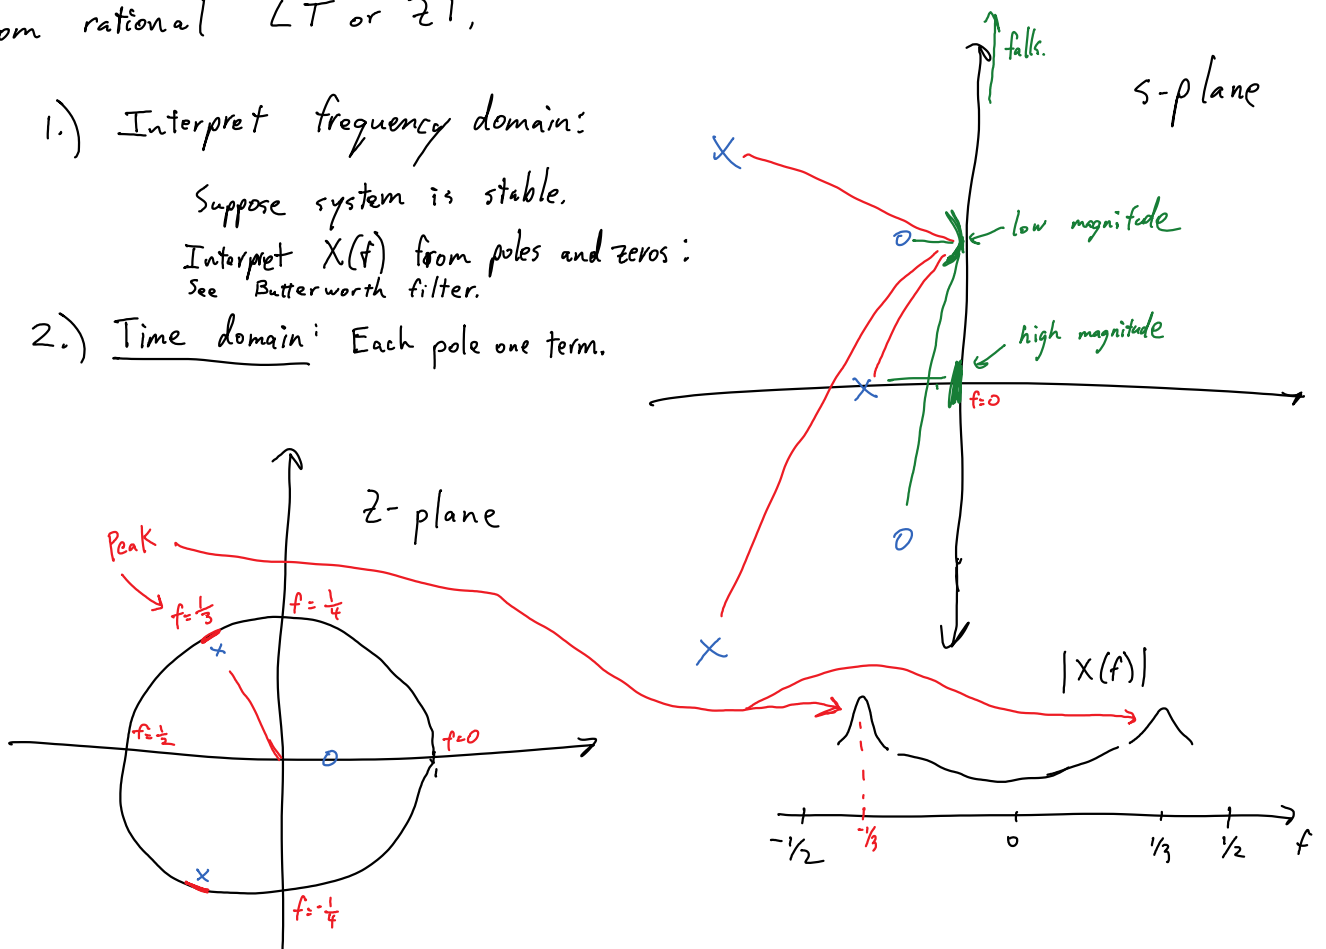 om rational LT or ZT.
1.) Interpret frequency domain:
Suppose system is stable.
Interpret X(f) from poles and zeros:
See Butterworth filter.
2.) Time domain: Each pole one term.
falls.
s-plane
X
O
low magnitude
high magnitude
X
f=0
O
X
Z-plane
Peak
f=1/3
f=1/4
x
f=1/2
O
f=0
1
x
f=-1/4
|X(f)|
-1/2
-1/3
0
1/3
1/2
f